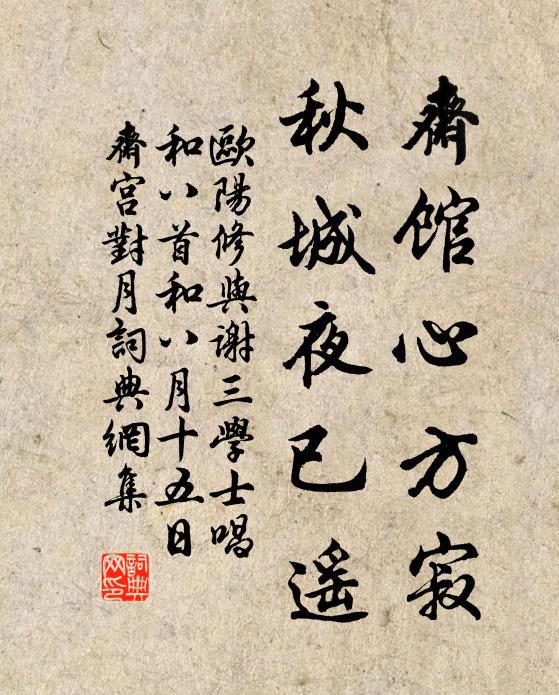 齋馆心方寂
秋城夜已遥
歐陽修與谢三學士唱
和八首和八月十五日
齋宫對月詞典網集
詞典
网印